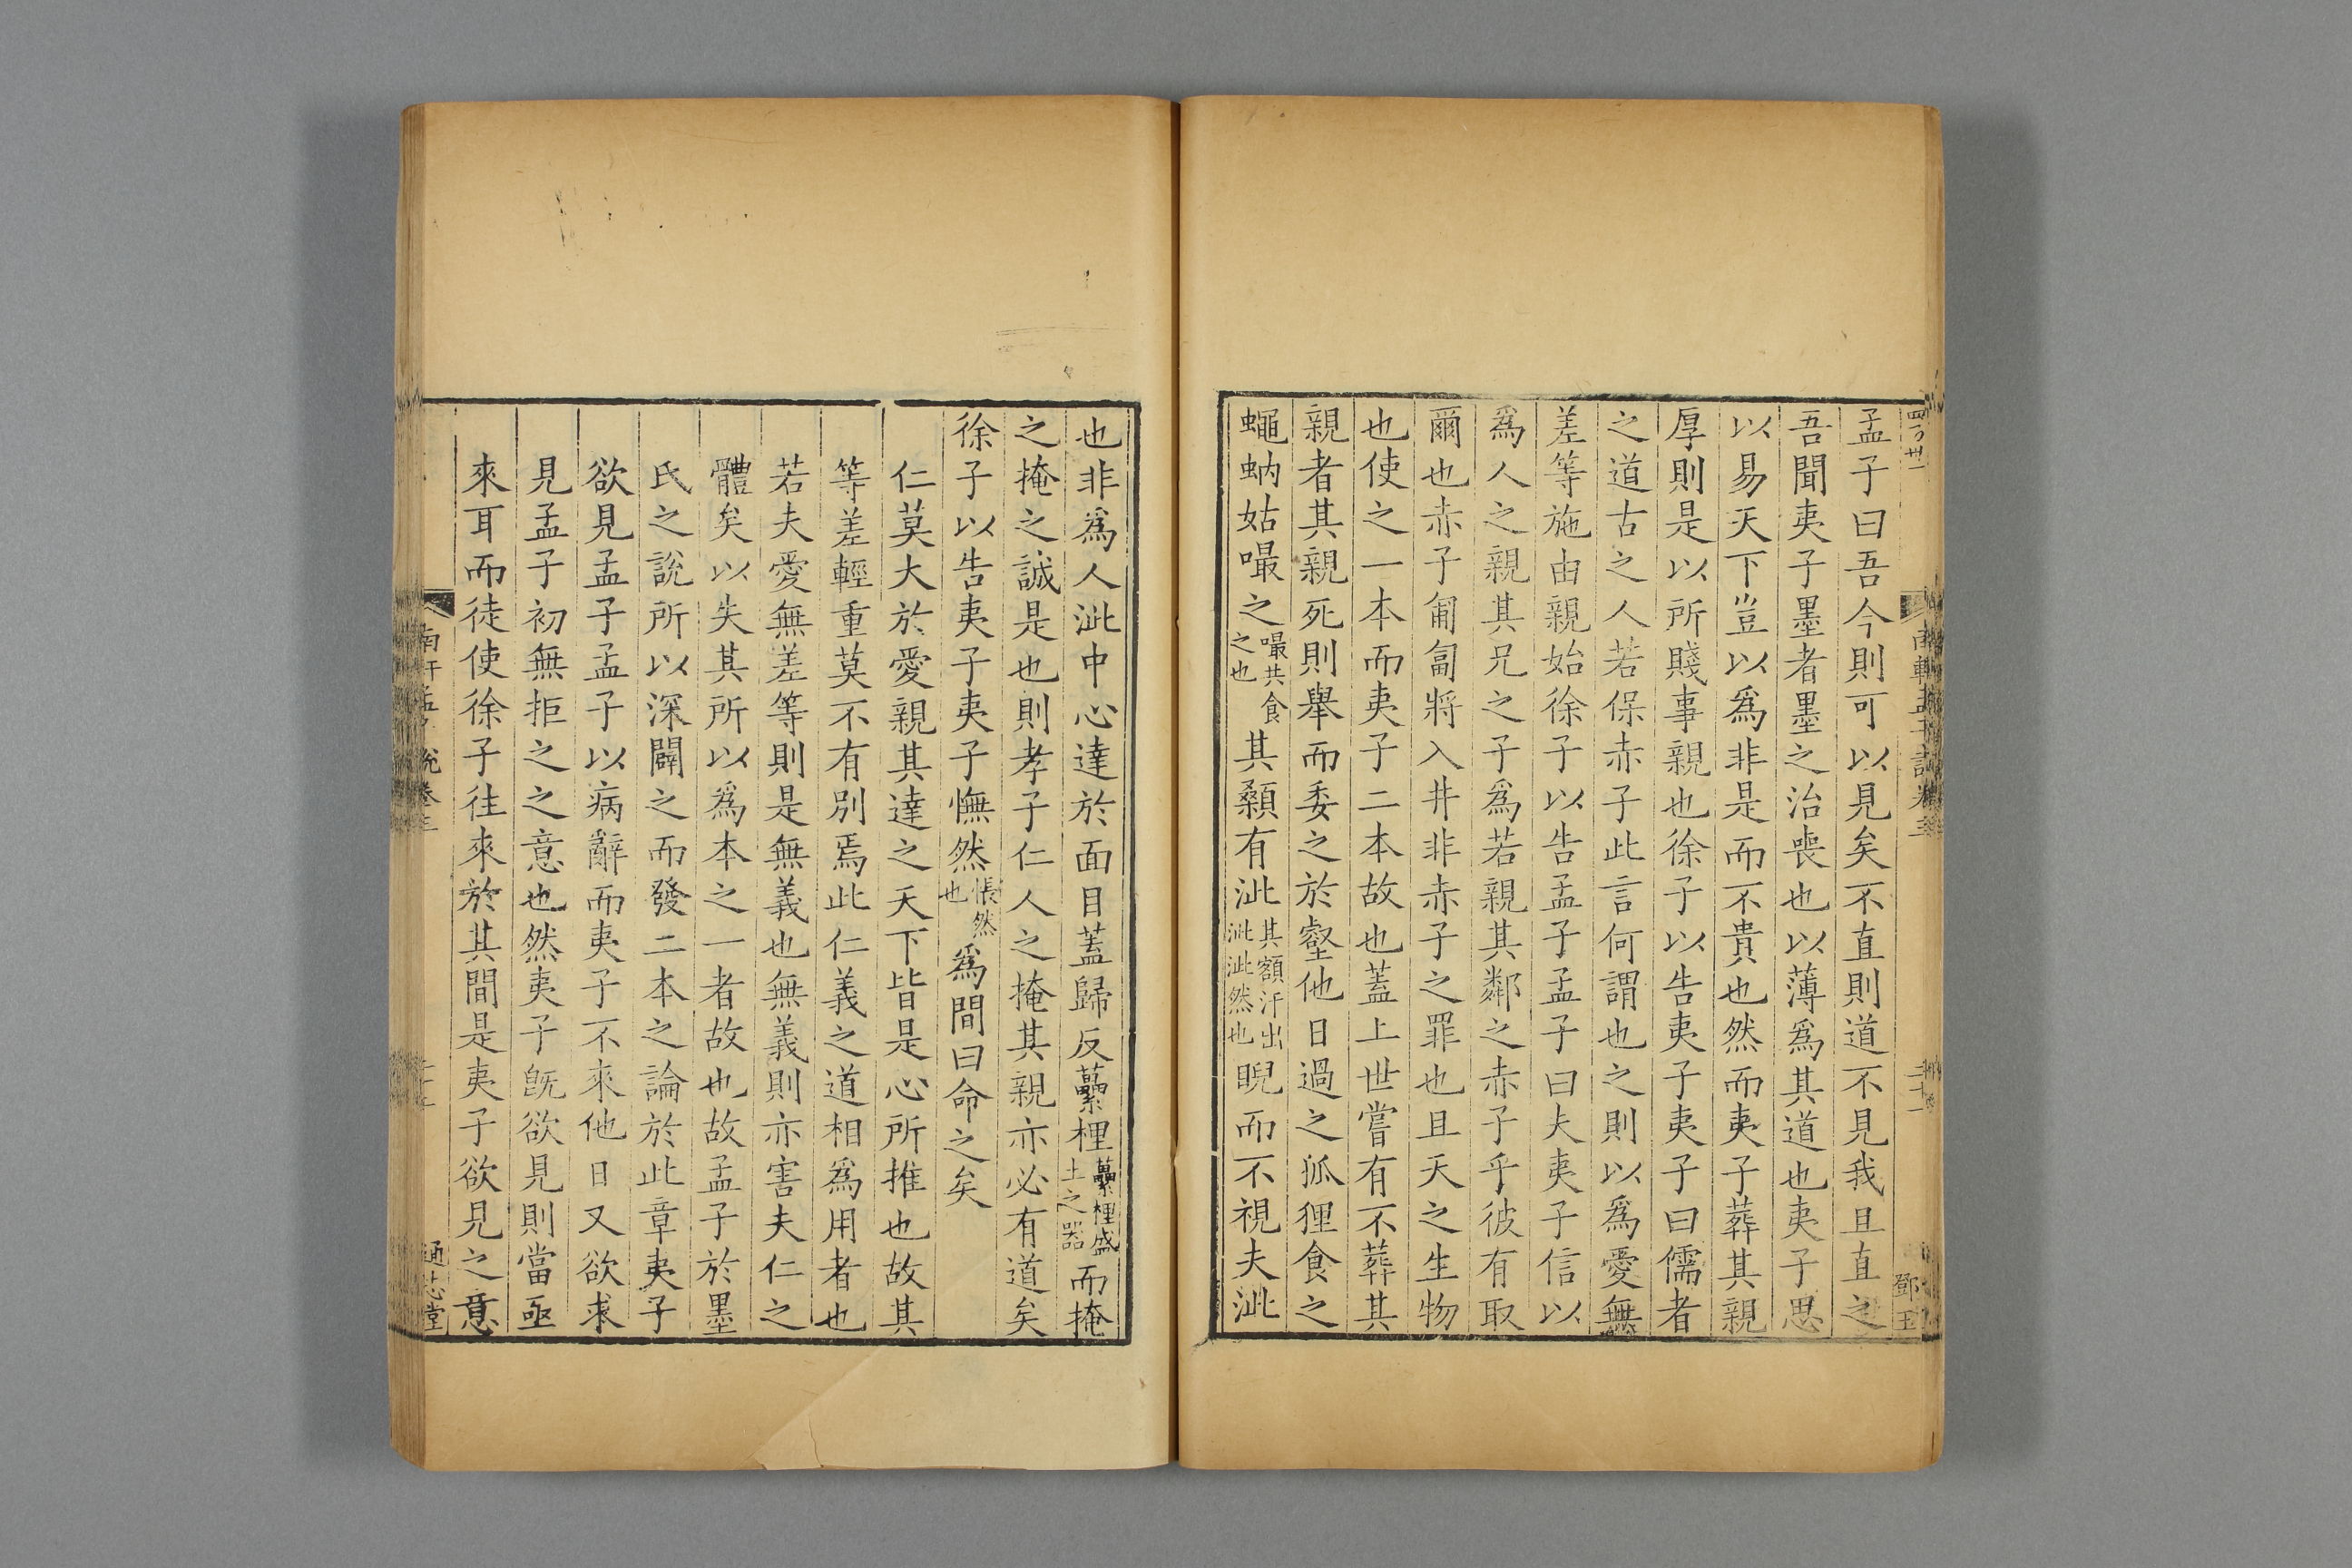 孟子曰吾今則可以見矣不直則道不見我且直之
吾聞夷子墨者墨之治喪也以薄爲其道也夷子思
以易天下豈以爲非是而不貴也然而夷子葬其親
厚則是以所賤事親也徐子以告夷子夷子曰儒者
之道古之人若保赤子此言何謂也之則以爲愛無
差等施由親始徐子以告孟子孟子曰夫夷子信以
爲人之親其兄之子爲若親其鄰之赤子乎彼有取
爾也赤子匍匐將入井非赤子之罪也且天之生物
也使之一本而夷子二本故也蓋上世嘗有不葬其
親者其親死則舉而委之於壑他日過之狐狸食之
蠅蚋姑嘬之嘬共食之也其顙有泚其額汗出泚泚然也睨而不視夫泚
也非爲人泚中心達於面目蓋歸反虆梩虆梩盛土之器而掩
之掩之誠是也則孝子仁人之掩其親亦必有道矣
徐子以告夷子夷子憮然悵然也爲間曰命之矣
仁莫大於愛親其達之天下皆是心所推也故其
等差輕重莫不有別焉此仁義之道相爲用者也
若夫愛無差等則是無義也無義則亦害夫仁之
體矣以失其所以爲本之一者故也故孟子於墨
氏之說所以深闢之而發二本之論於此章夷子
欲見孟子孟子以病辭而夷子不來他日又欲求
見孟子初無拒之之意也然夷子旣欲見則當亟
來耳而徒使徐子往來於其間是夷子欲見之意
通志堂